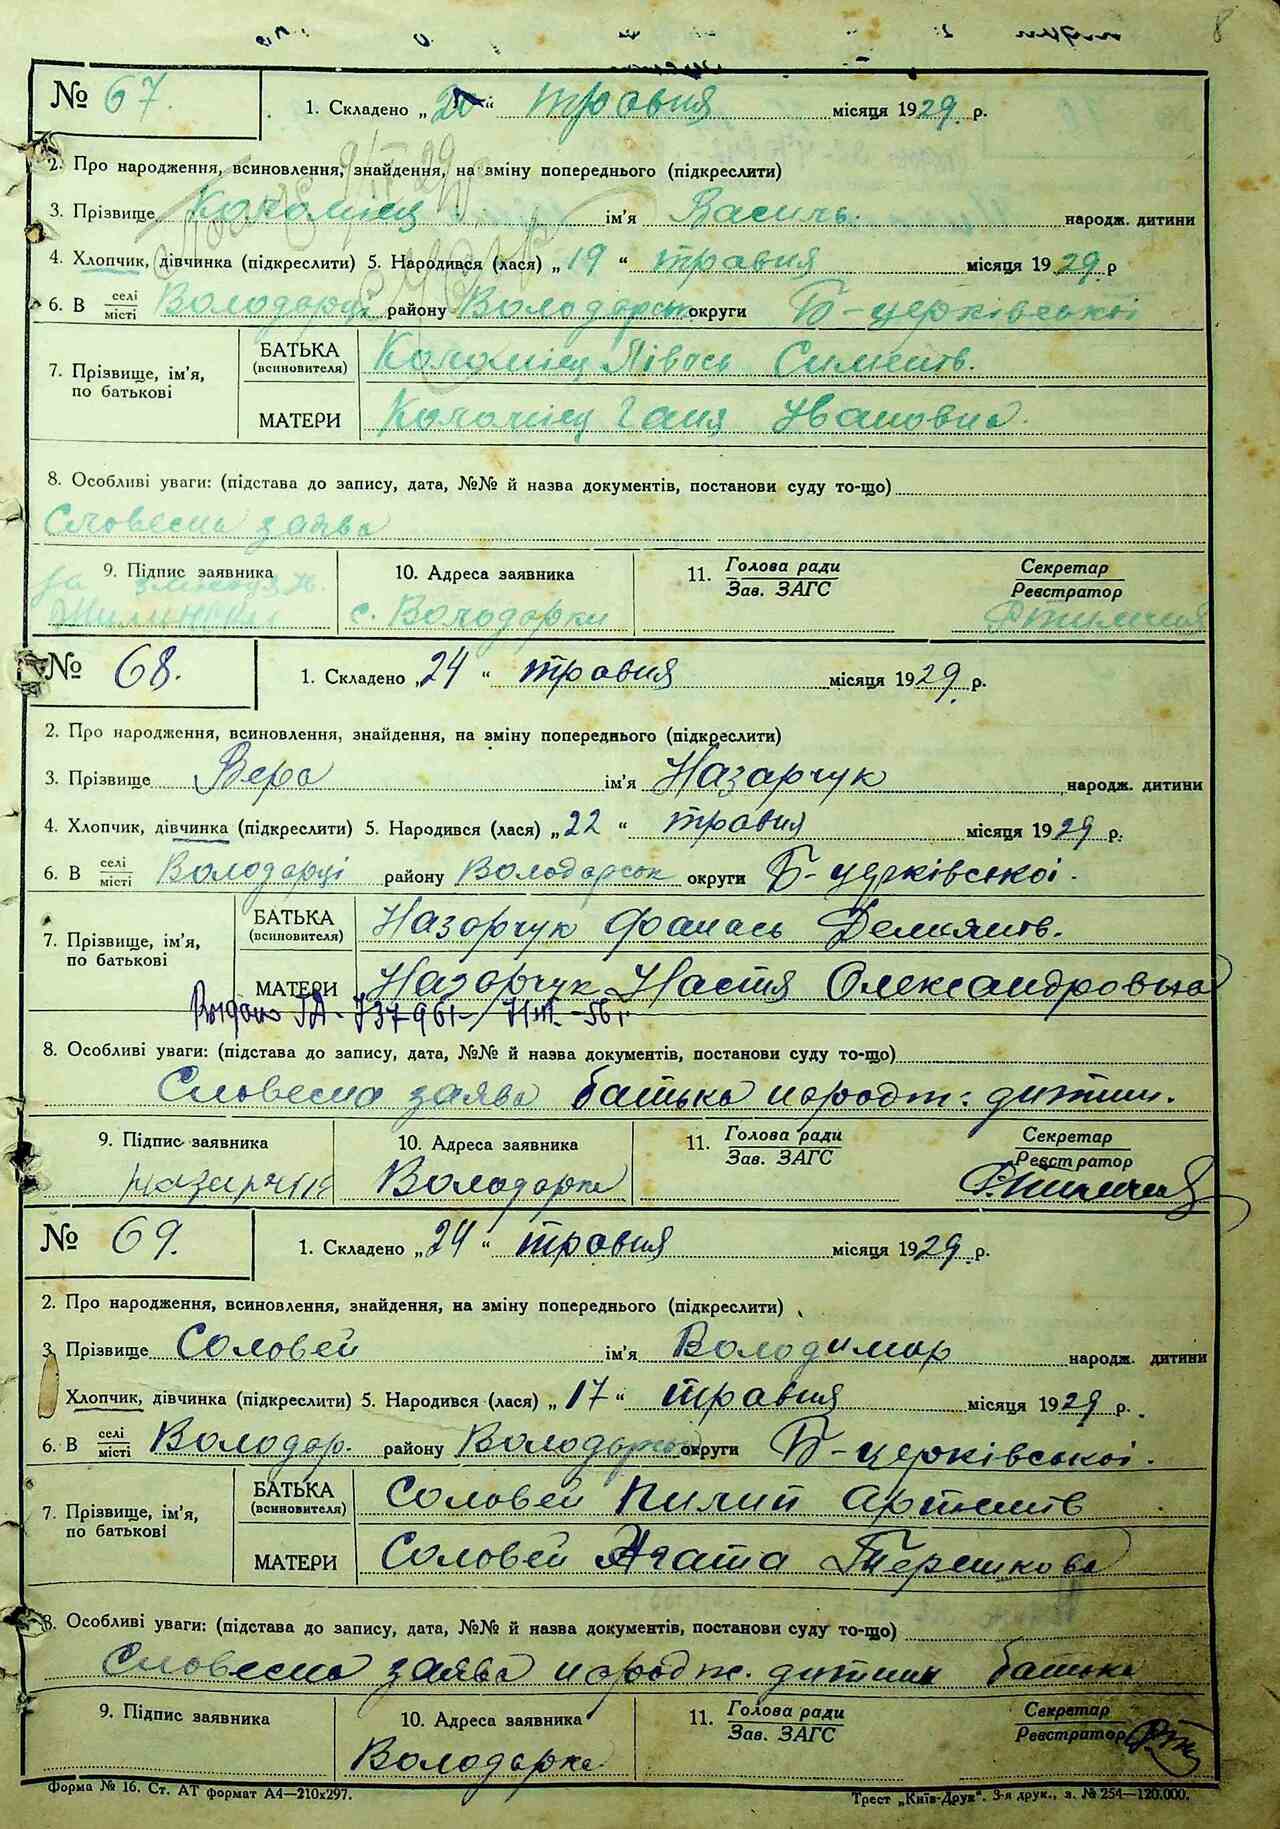 8
№ 67. 1. Складено „20“ травня місяця 1929 р.
2. Про народження, всиновлення, знайдення, на зміну попереднього (підкреслити)
3. Прізвище Коломієц ім'я Василь. народж. дитини
4. Хлопчик, дівчинка (підкреслити) 5. Народився (лася) „19“ травня місяця 1929 р
6. В селі місті Володарці району Володарськ округи Б-церківської
БАТЬКА (всиновителя) Коломієц Півась Сименів.
7. Прізвище, ім'я, по батькові
МАТЕРИ Коломієц Ганя Івановна.
8. Особливі уваги: (підстава до запису, дата, №№ й назва документів, постанови суду то-що)
Словесна заява
9. Підпис заявника 10. Адреса заявника 11. Голова ради Зав. ЗАГС Секретар Реєстратор
за
с. Володарки
№ 68. 1. Складено „24“ травня місяця 1929 р.
2. Про народження, всиновлення, знайдення, на зміну попереднього (підкреслити)
3. Прізвище Вера ім'я Назарчук народж. дитини
4. Хлопчик, дівчинка (підкреслити) 5. Народився (лася) „22“ травня місяця 1929 р.
6. В селі місті Володарці району Володарськ округи Б-церківської.
БАТЬКА (всиновителя) Назарчук Фанась Демянів.
7. Прізвище, ім'я, по батькові
МАТЕРИ Назарчук Настя Олександровна
8. Особливі уваги: (підстава до запису, дата, №№ й назва документів, постанови суду то-що)
Словесна заява батька народж. дитини.
9. Підпис заявника 10. Адреса заявника 11. Голова ради Зав. ЗАГС Секретар Реєстратор
Володарка
№ 69. 1. Складено „24“ травня місяця 1929 р.
2. Про народження, всиновлення, знайдення, на зміну попереднього (підкреслити)
3. Прізвище Соловей ім'я Володимар народж. дитини
Хлопчик, дівчинка (підкреслити) 5. Народився (лася) „17“ травня місяця 1929 р.
6. В селі місті Володар. району Володарськ округи Б-церківської.
БАТЬКА (всиновителя) Соловей Пилип Артемів
7. Прізвище, ім'я, по батькові
МАТЕРИ Соловей Агата Терешкова
8. Особливі уваги: (підстава до запису, дата, №№ й назва документів, постанови суду то-що)
Словесна заява народж. дитини батька
9. Підпис заявника 10. Адреса заявника 11. Голова ради Зав. ЗАГС Секретар Реєстратор
Володарка
Форма № 16. Ст. АТ формат А4—210x297. Трест „Київ-Друк“. 3-я друк., з. № 254—120.000.